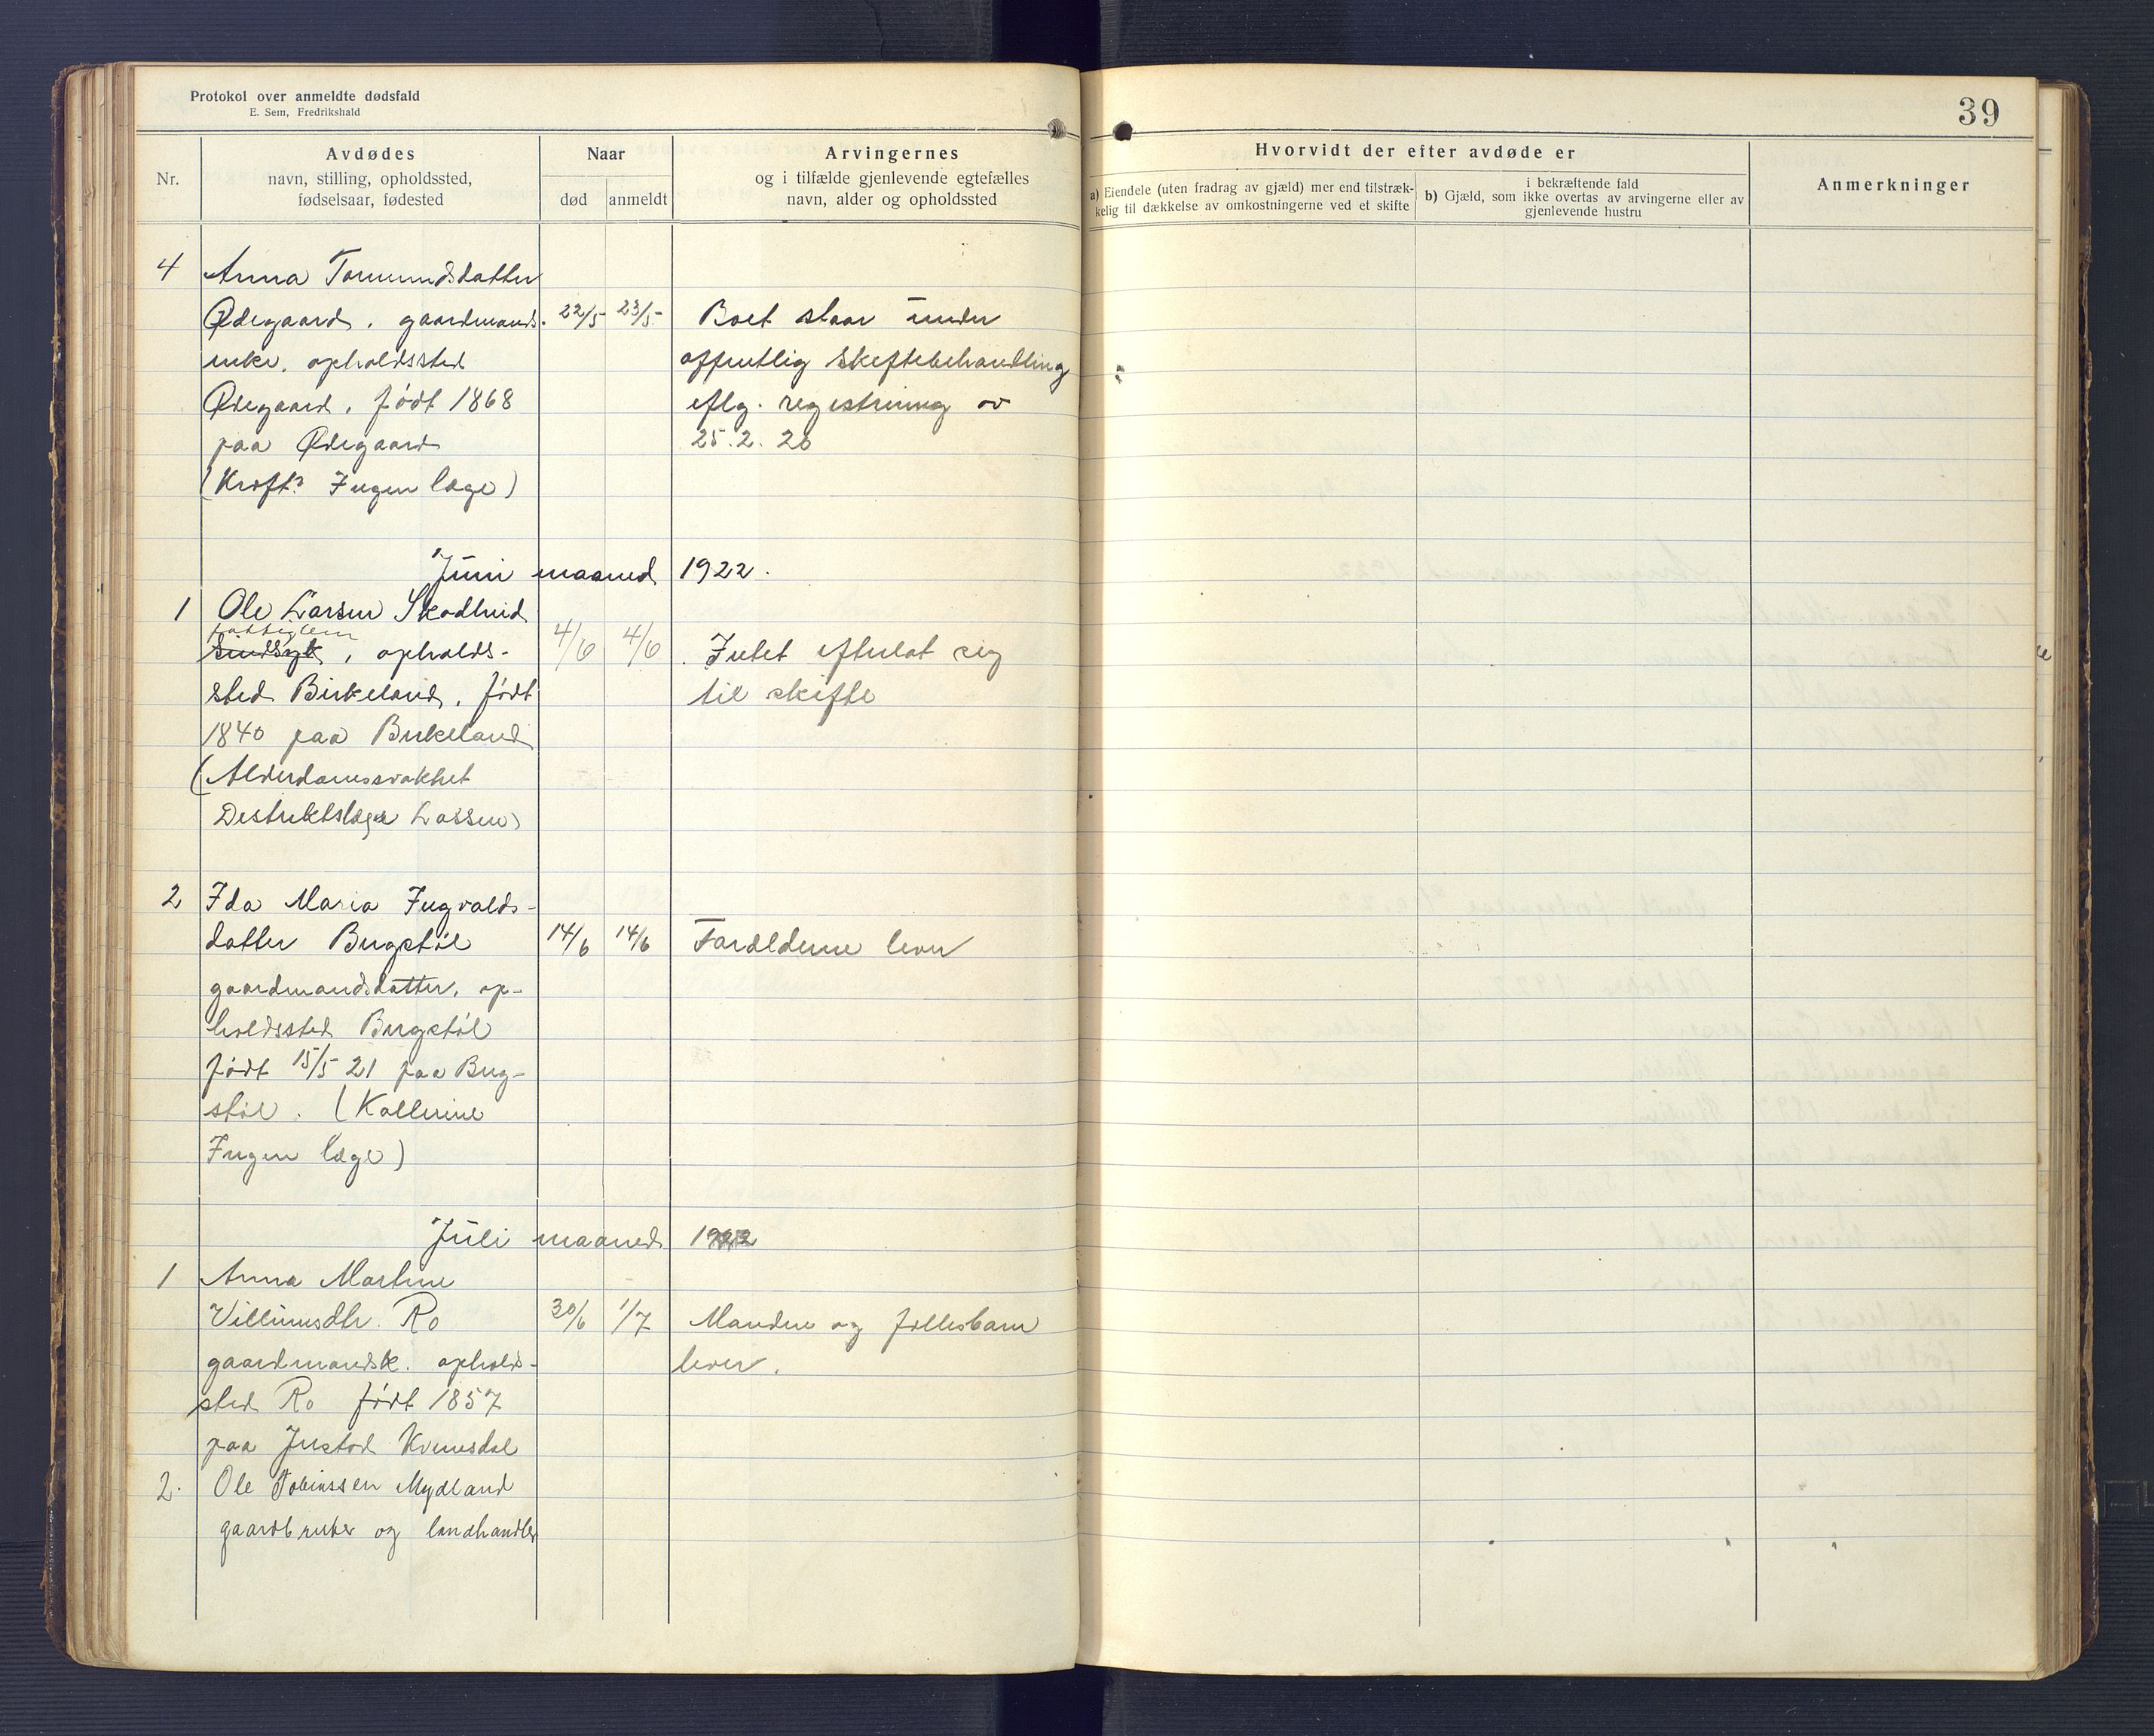 Protokol over anmeldte dødsfald
E. Sem, Fredrikshald
39
Nr.
Avdødes
navn, stilling, opholdssted,
fødselsaar, fødested
Naar
død
anmeldt
Arvingernes
og i tilfælde gjenlevende egtefælles
navn, alder og opholdssted
Hvorvidt der efter avdøde er
a) Eiendele (uten fradrag av gjæld) mer end tilstræk-
kelig til dækkelse av omkostningerne ved et skifte
b) Gjæld, som i bekræftende fald
ikke overtas av arvingerne eller av
gjenlevende hustru
Anmerkninger
4 Anna Tormundsdatter
Ødegaard, gaardmands- 22/5 23/5 Boet staar under
enke, opholdssted offentlig skeftebehandling
Ødegaard, født 1868 eflg. registrering av
paa Ødegaard 25.2.20
(Kræft? Ingen læge)
Juni maaned 1922.
1 Ole Larsen Skodlund
fattiglem
Sindsyk, opholds- 4/6 4/6 Intet efterlat sig
sted Birkeland, født til skifte
1840 paa Birkeland
(Alderdomssvakhet
Destriktslæge Lassen)
2 Ida Maria Ingvalds-
datter Bergstøl 14/6 14/6 Forælderne lever
gaardmandsdatter, op-
holdssted Bergstøl
født 15/5 21 paa Berg-
støl. (Kollerine
Ingen læge)
Juli maaned 1922
1 Anna Martine
Villumsdtr. Ro 30/6 1/7 Manden og fællesbarn
gaardmandsk. opholds- lever.
sted Ro født 1857
paa Jerstad Kvinesdal
2. Ole Tobiassen Mydland
gaardbruker og landhandler